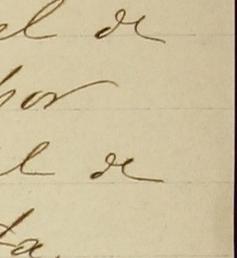 el de
por
l de
ta